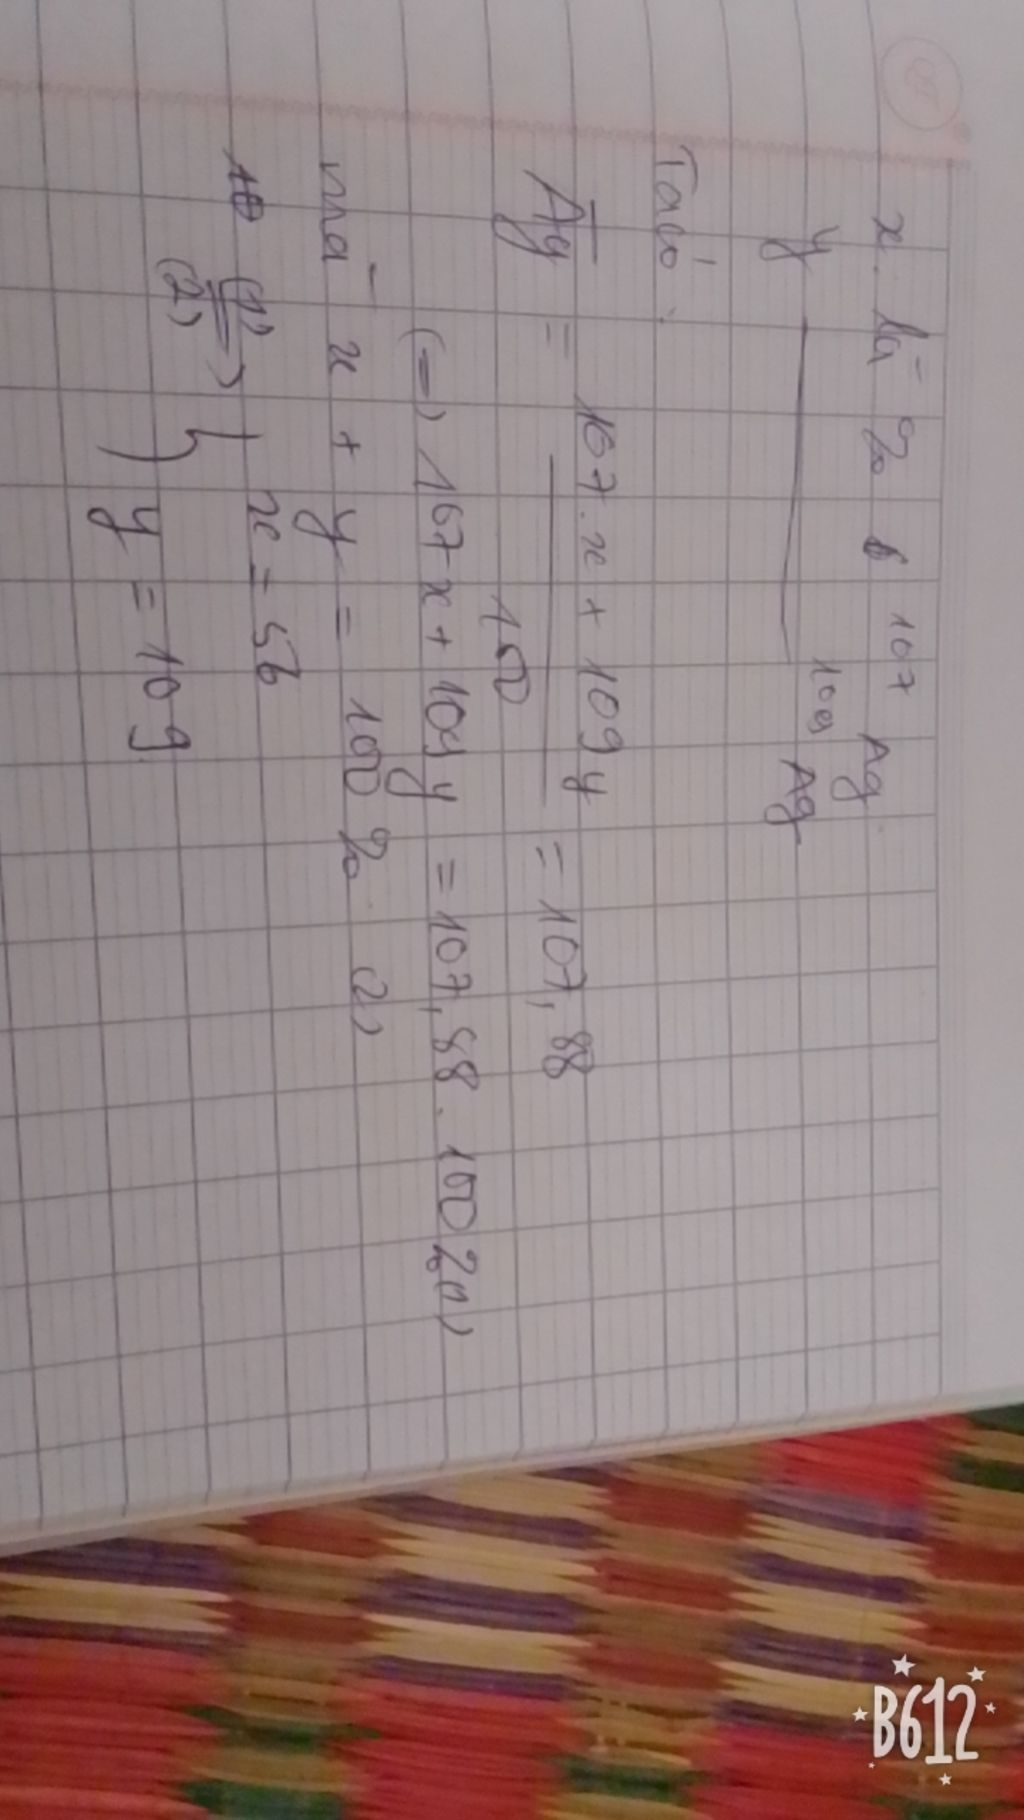 x là % 107 Ag
y 109 Ag
Ta có :
Ag = 167.x + 109y / 100 = 107,88
(=) 167x + 109y = 107,88 . 100 % (1)
mà x + y = 100 % (2)
(1)
(2) => } x = 56
y = 109
B612